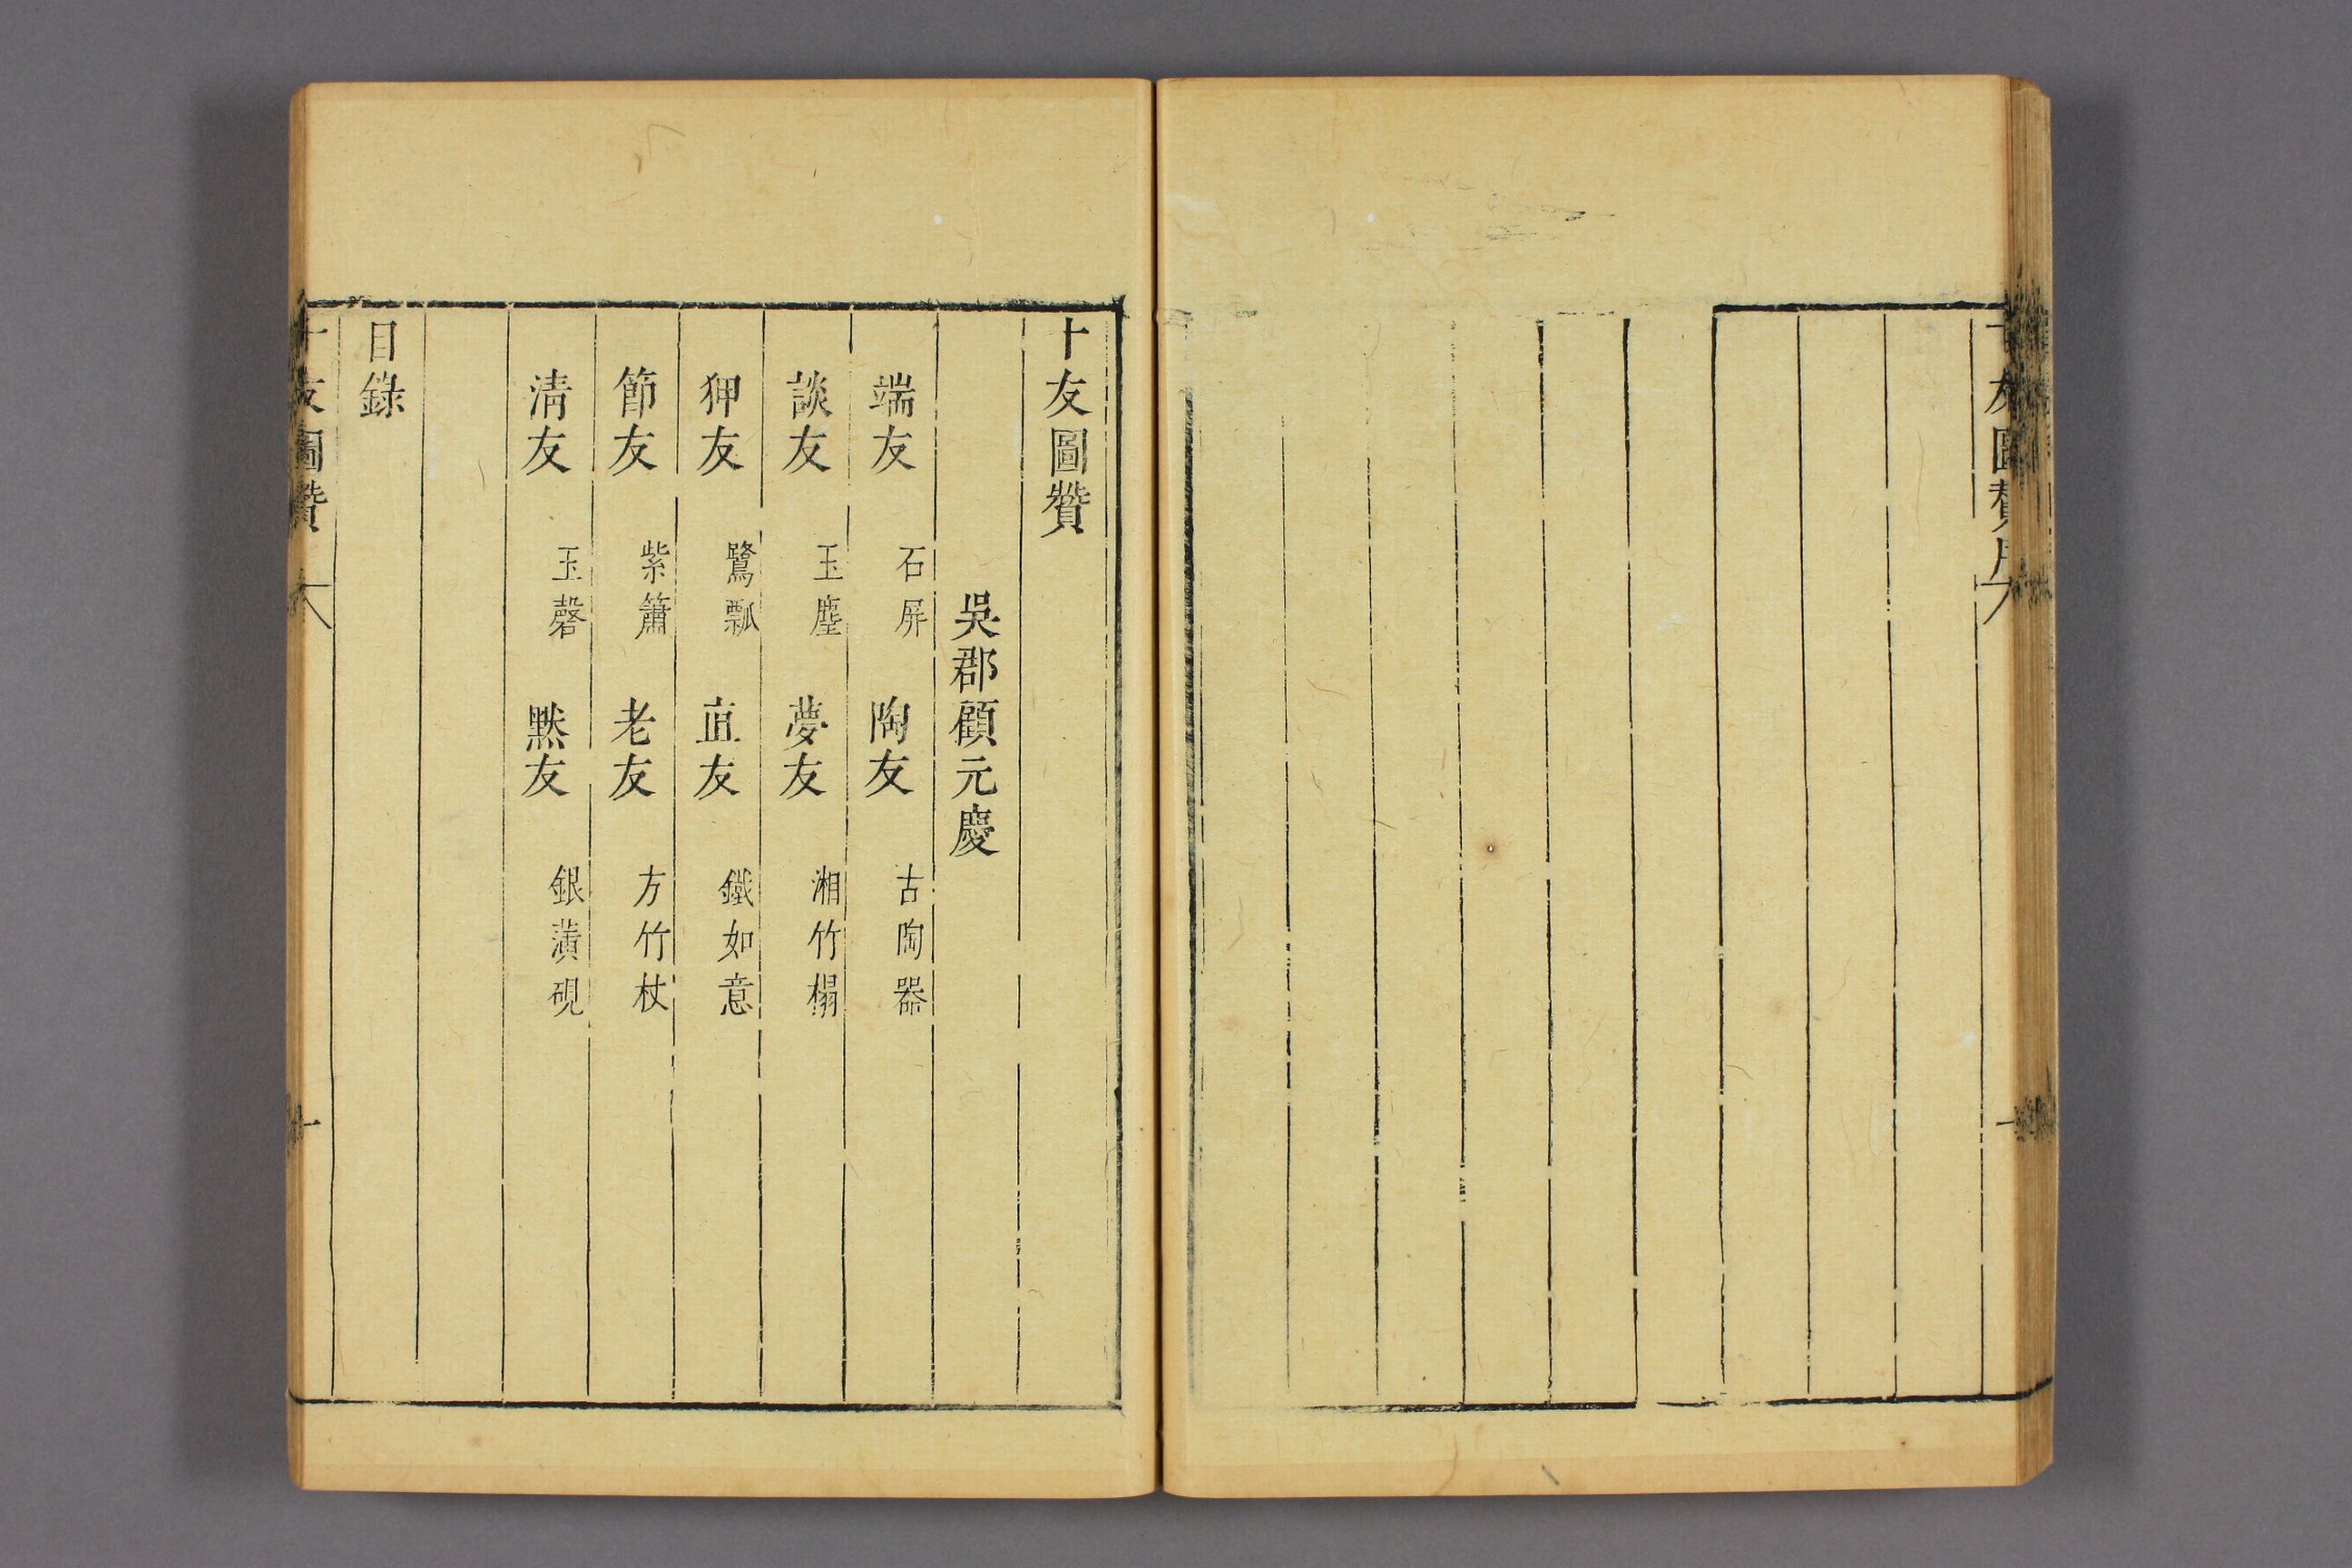 十友圖贊
吳郡顧元慶
端友 石屏 陶友 古陶器
談友 玉麈 夢友 湘竹榻
狎友 鷺瓢 直友 鐵如意
節友 紫簫 老友 方竹杖
清友 玉磬 默友 銀潢硯
目錄
十友圖贊 一